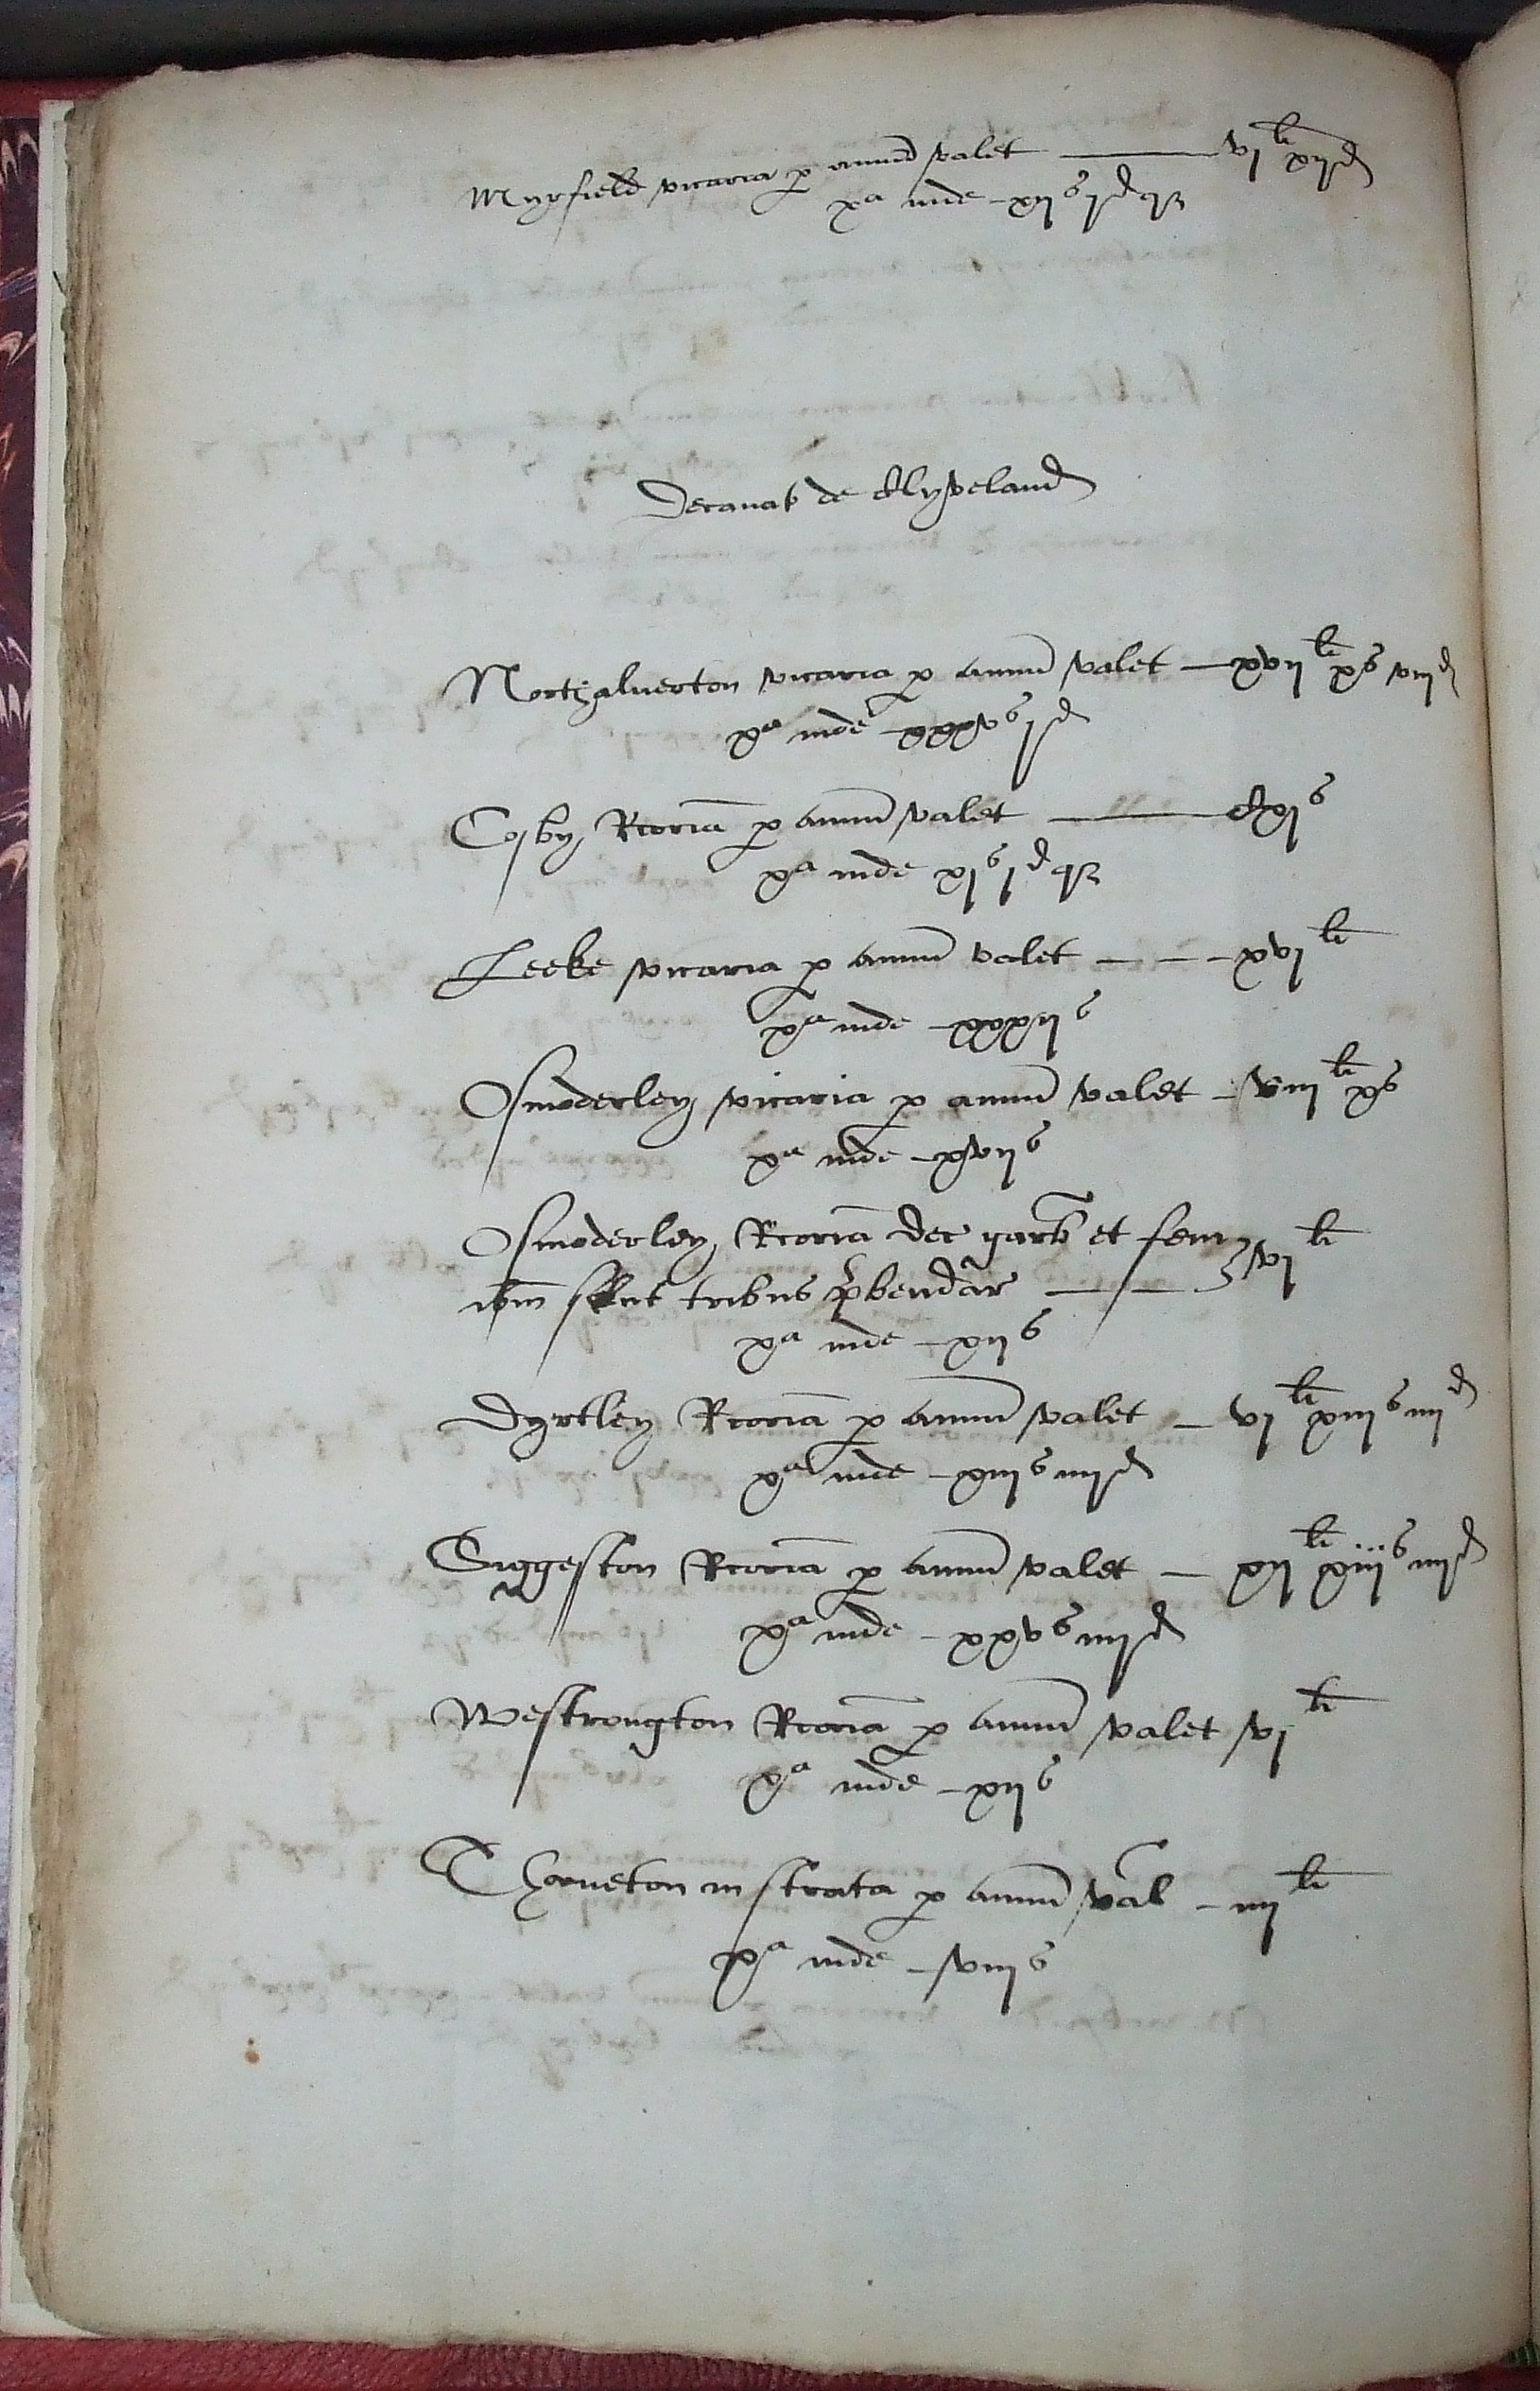 Myrfield vicaria p annu valet — vj li xijd
xa inde – xijs jd qz
Decanat de Clyveland
Northalverton vicaria p annu valet – xvij li xs viijd
xa inde – xxxvs jd
Cosby Rcoria p annu valet — cxjs
xa inde xjs jd qz
Leeke vicaria p annu valet – – – xvj li
xa inde – xxxijs
Osmoderley vicaria p annu valet – viij li xs
xa inde – xvijs
Osmoderley Rcoria dec garb et feni
ibm sunt tribus pbendar — — vj li
xa inde – xijs
Dyrtley Rcoria p annu valet – vj li xiijs iiijd
xa inde – xiijs iiijd
Siggeston Rcoria p annu valet — xij li xiijs iiijd
xa inde – xxvs iiijd
Westrongton Rcoria p annu valet vj li
xa inde – xijs
Thorneton in strata p annu val – iiij li
xa inde – viijs